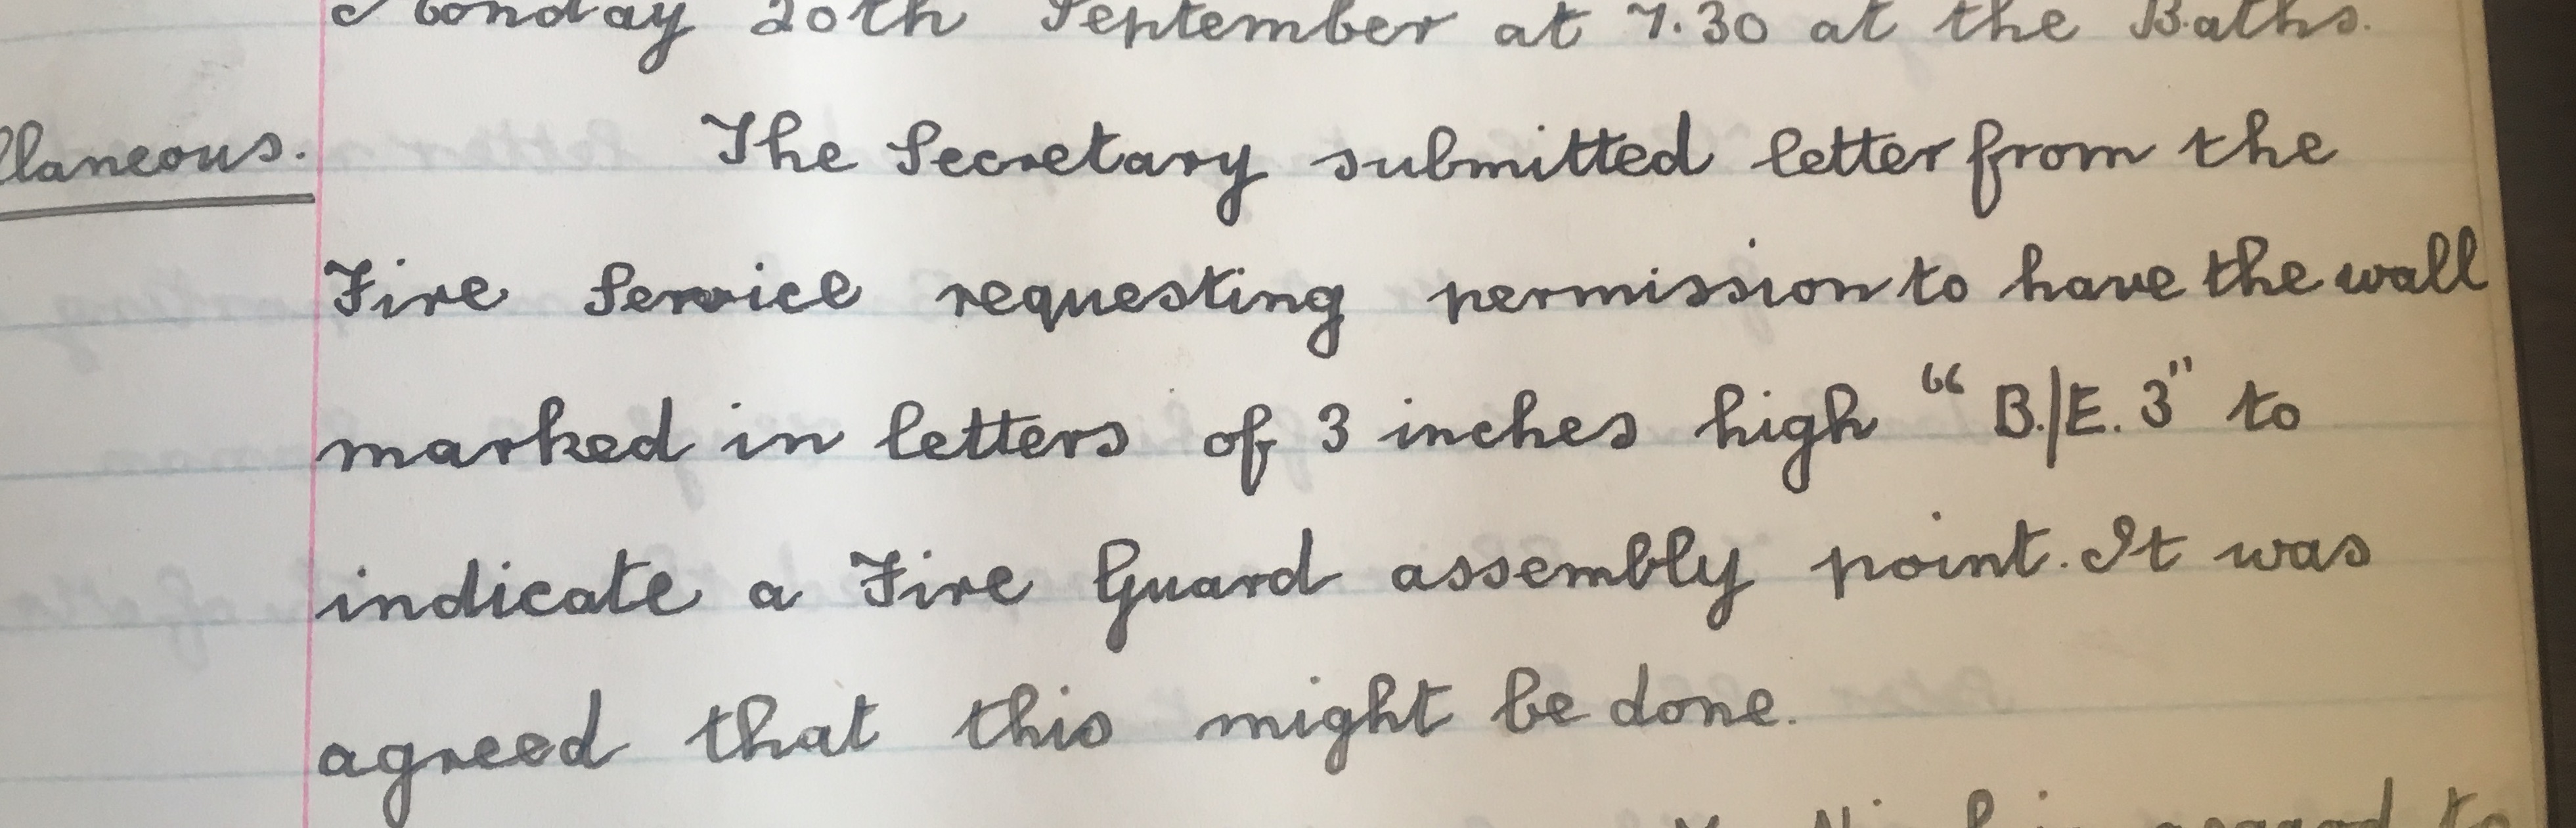 Monday 20th September at 7.30 at the Baths.
llaneous.
The Secretary submitted letter from the
Fire Service requesting permission to have the wall
marked in letters of 3 inches high "B./E. 3" to
indicate a Fire Guard assembly point. It was
agreed that this might be done.
agreed to